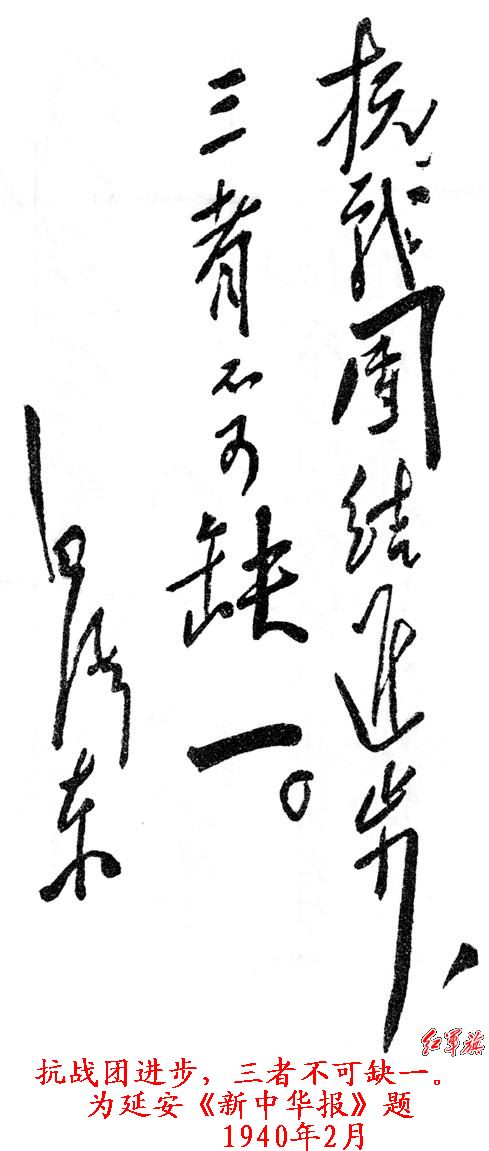 抗战团结进步、
三者不可缺一。
毛泽东
红军旗
抗战团进步，三者不可缺一。
为延安《新中华报》题
1940年2月